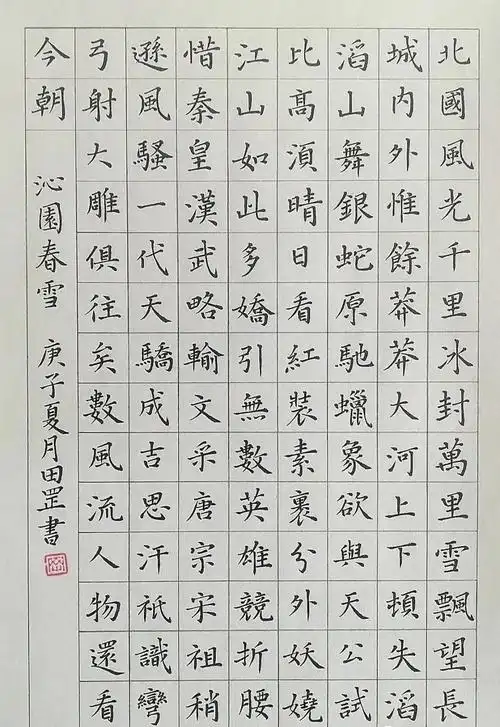 北國風光千里冰封萬里雪飄望長
城内外惟餘莽莽大河上下頓失滔
滔山舞銀蛇原馳蠟象欲與天公試
比髙湏晴日看紅裝素裹分外妖嬈
江山如此多嬌引無數英雄競折腰
惜秦皇漢武略輸文采唐宗宋祖稍
遜風騷一代天驕成吉思汗祇識彎
弓射大雕俱往矣數風流人物還看
今朝 沁園春雪 庚子夏月田罡書